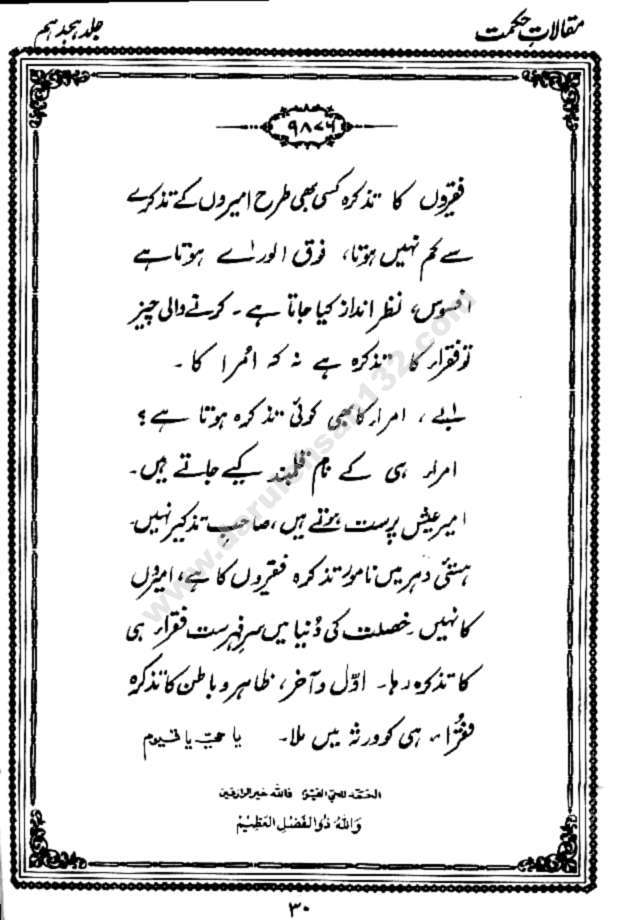 مقالاتِ حکمت
جلد ہجدہم
۹۸۷۶
فقیروں کا تذکرہ کسی بھی طرح امیروں کے تذکرے
سے کم نہیں ہوتا، فوق الورٰے ہوتا ہے
افسوس، نظر انداز کیا جاتا ہے۔ کرنے والی چیز
تو فقراء کا تذکرہ ہے نہ کہ اُمرا کا۔
لیے، امراء کا بھی کوئی تذکرہ ہوتا ہے؟
امراء ہی کے نام قلمبند کیے جاتے ہیں۔
امیر عیش پرست ہوتے ہیں، صاحبِ تذکیر نہیں۔
ہستئی دہر میں نامور تذکرہ فقیروں کا ہے، امیروں
کا نہیں۔ خصلت کی دُنیا میں سرِفہرست فقراء ہی
کا تذکرہ رہا۔ اوّل و آخر، ظاہر و باطن کا تذکرہ
فقراء ہی کو ورثہ میں ملا۔ یا حیّ یا قیوم
الحمد للحی القیوم فاللہ خیر الرازقین
وَاللهُ ذُوالْفَضْلِ الْعَظِیْمِ
۳۰
www.darulehsan132.com